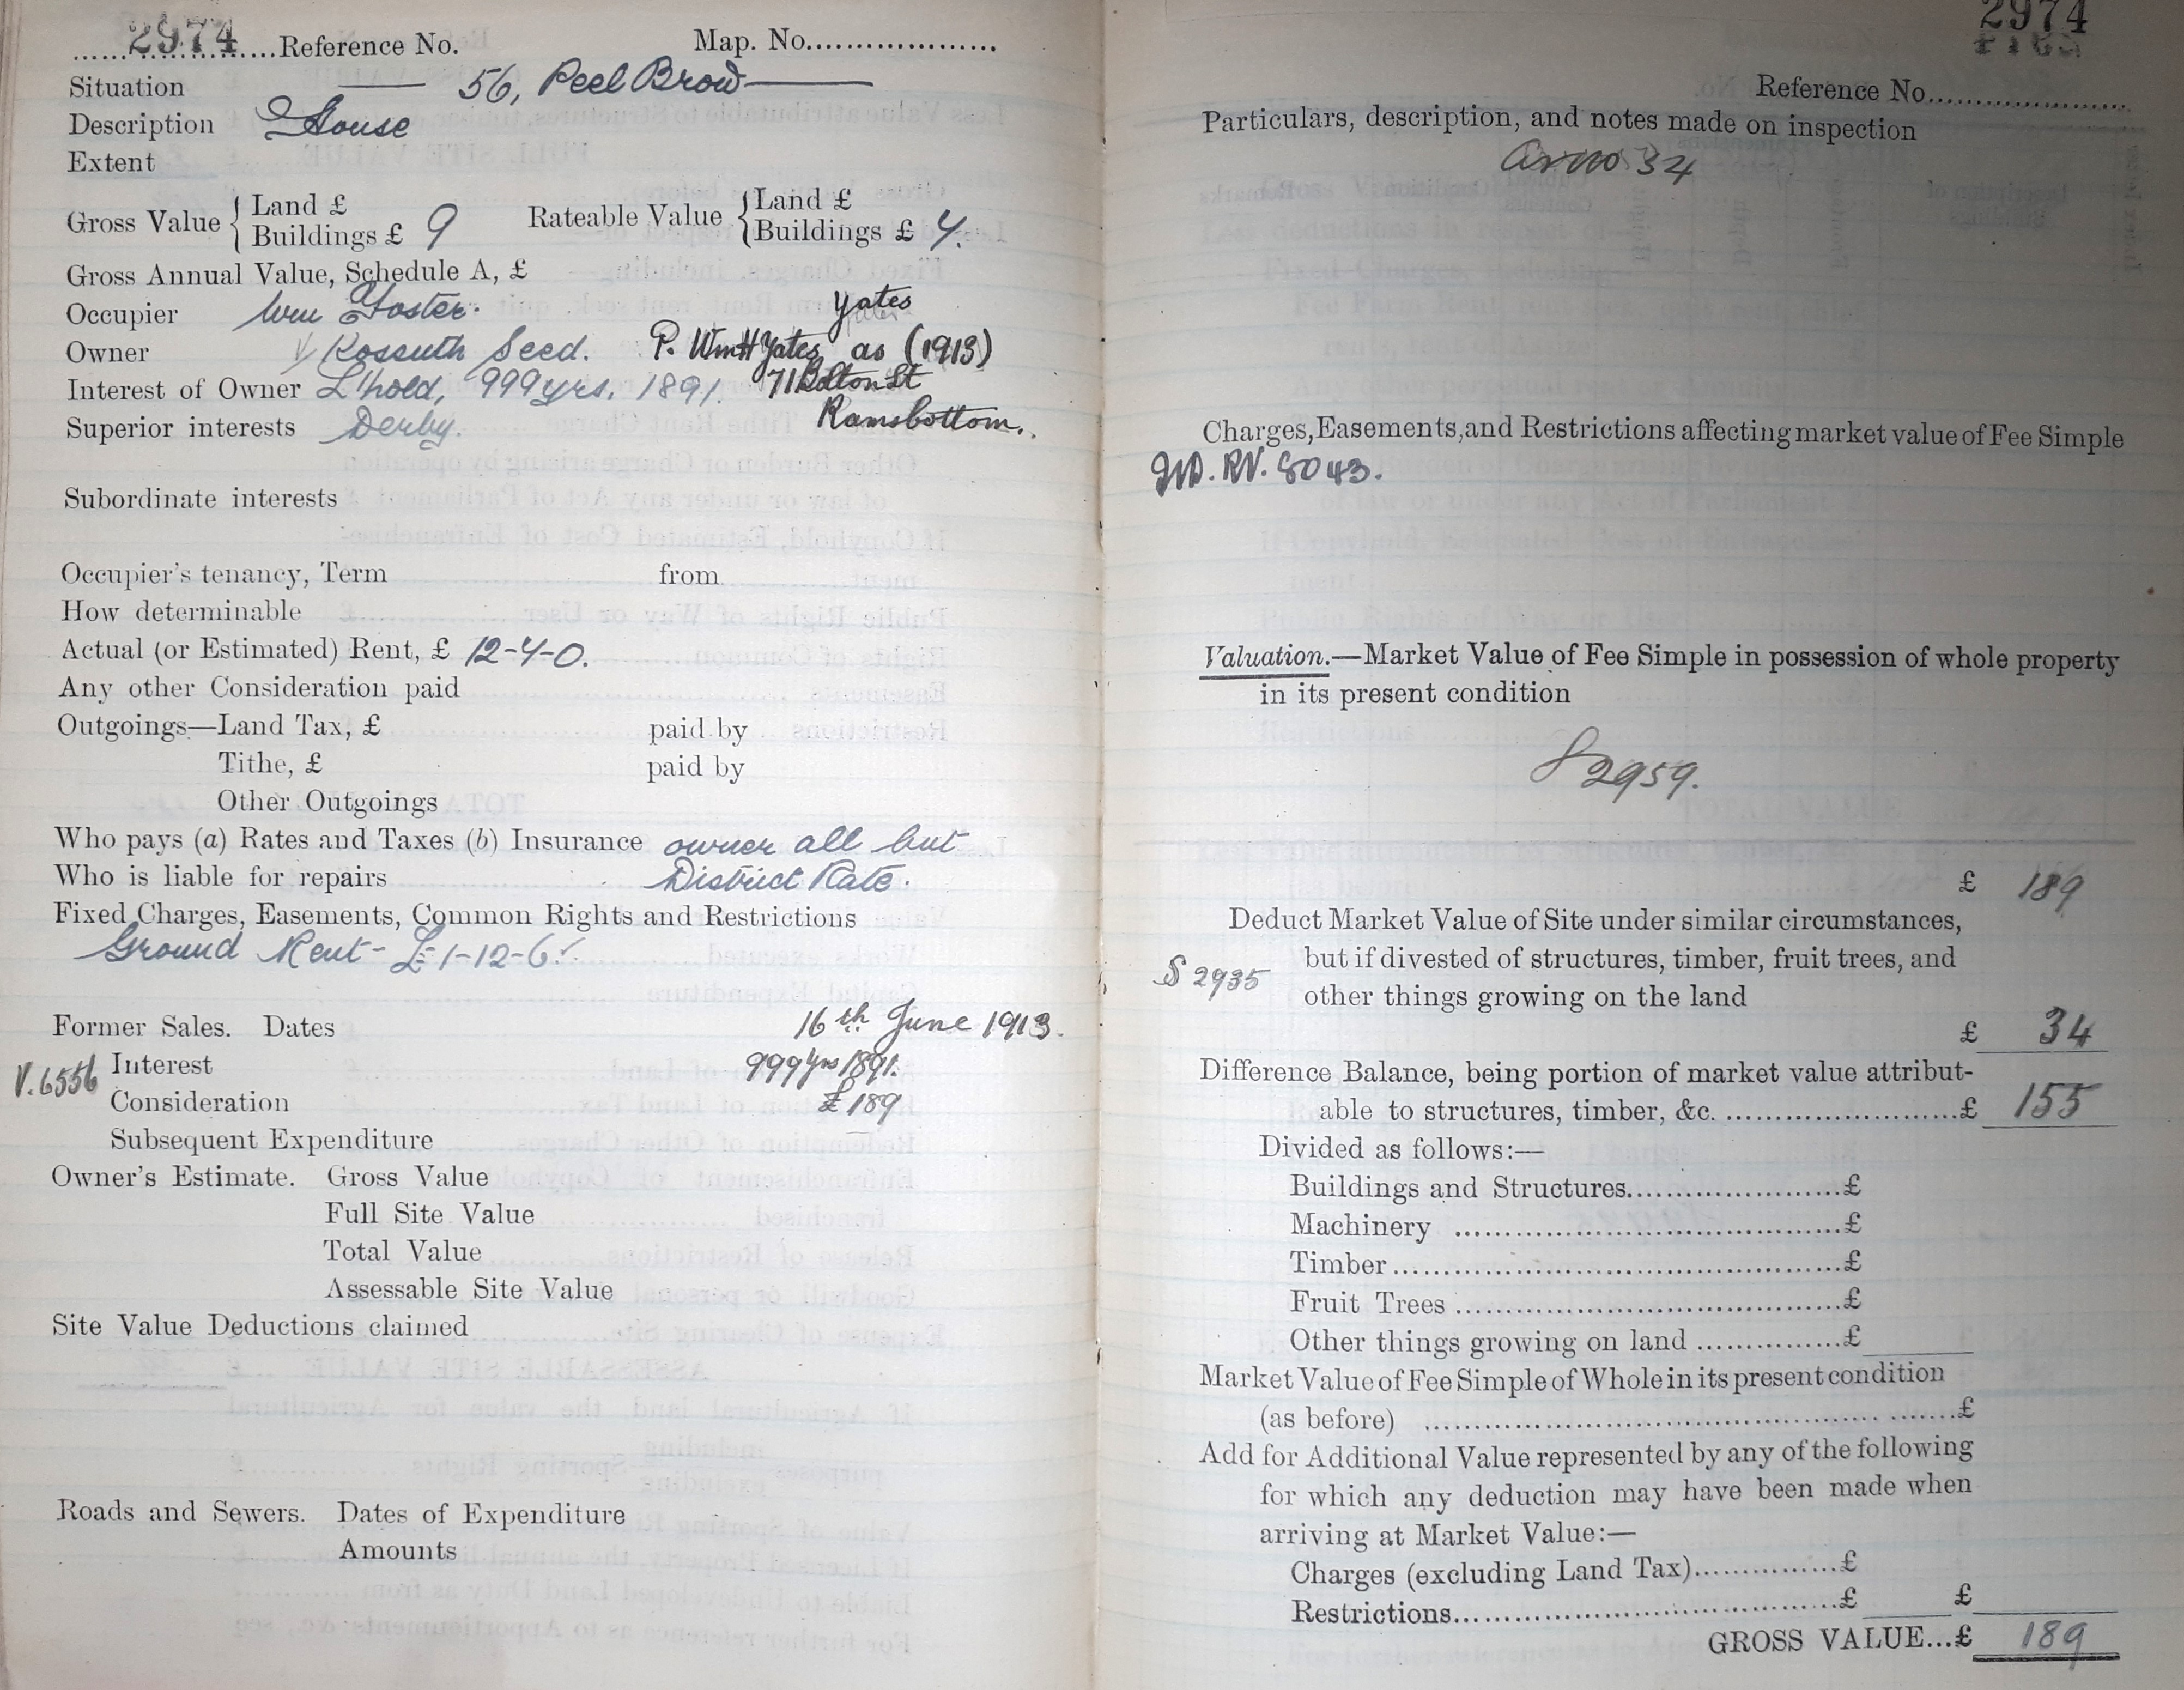 2974 Reference No. Map. No.
Situation 56, Peel Brow
Description House
Extent
Gross Value { Land £
Buildings £ 9
Rateable Value { Land £
Buildings £ 7.
Gross Annual Value, Schedule A, £
Occupier Wm Foster. Yates
Owner Kossuth Seed. P. Wm H Yates as (1913)
Interest of Owner L'hold, 999 yrs. 1891. 71 Bolton St
Superior interests Derby. Ramsbottom.
Subordinate interests
Occupier's tenancy, Term from
How determinable
Actual (or Estimated) Rent, £ 12-7-0.
Any other Consideration paid
Outgoings—Land Tax, £ paid by
Tithe, £ paid by
Other Outgoings
Who pays (a) Rates and Taxes (b) Insurance owner all but
Who is liable for repairs District Rate.
Fixed Charges, Easements, Common Rights and Restrictions
Ground Rent - £1-12-6
Former Sales. Dates 16th June 1913.
V.6556 Interest 999 yrs 1891.
Consideration £189
Subsequent Expenditure
Owner's Estimate. Gross Value
Full Site Value
Total Value
Assessable Site Value
Site Value Deductions claimed
Roads and Sewers. Dates of Expenditure
Amounts
2974
Reference No.
Particulars, description, and notes made on inspection
as no 34
Charges, Easements, and Restrictions affecting market value of Fee Simple
RV. 8043.
Valuation.—Market Value of Fee Simple in possession of whole property
in its present condition
S 2959.
£ 189
Deduct Market Value of Site under similar circumstances,
but if divested of structures, timber, fruit trees, and
S 2935
other things growing on the land
£ 34
Difference Balance, being portion of market value attribut-
able to structures, timber, &c. £ 155
Divided as follows:—
Buildings and Structures £
Machinery £
Timber £
Fruit Trees £
Other things growing on land £
Market Value of Fee Simple of Whole in its present condition
(as before) £
Add for Additional Value represented by any of the following
for which any deduction may have been made when
arriving at Market Value:—
Charges (excluding Land Tax) £
Restrictions £ £
GROSS VALUE...£ 189